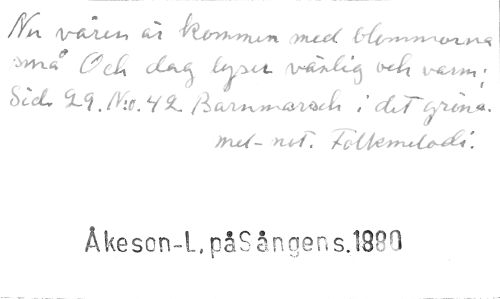 Nu våren är kommen med blommorna
små Och dag lyser vänlig och varm;
Sid. 29. N:o. 42 Barnmarsch i det gröna.
mel-not. Folkmelodi.
Åkeson-L, påSångens.1880